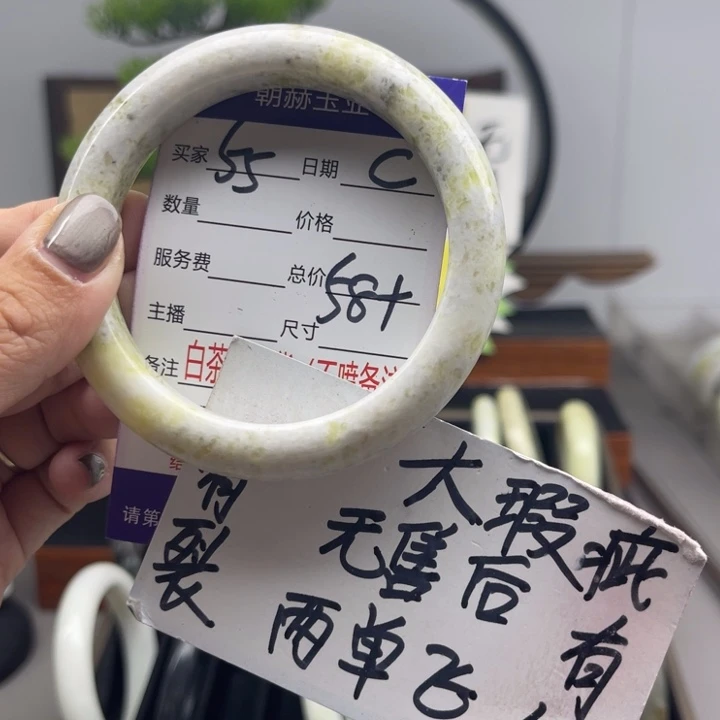 朝赫玉业
买家 55 日期 C
数量 价格
服务费 总价 58+
主播 尺寸
备注 白茶
不喷备注
请第
大瑕疵
有裂
无售后
有
两单飞